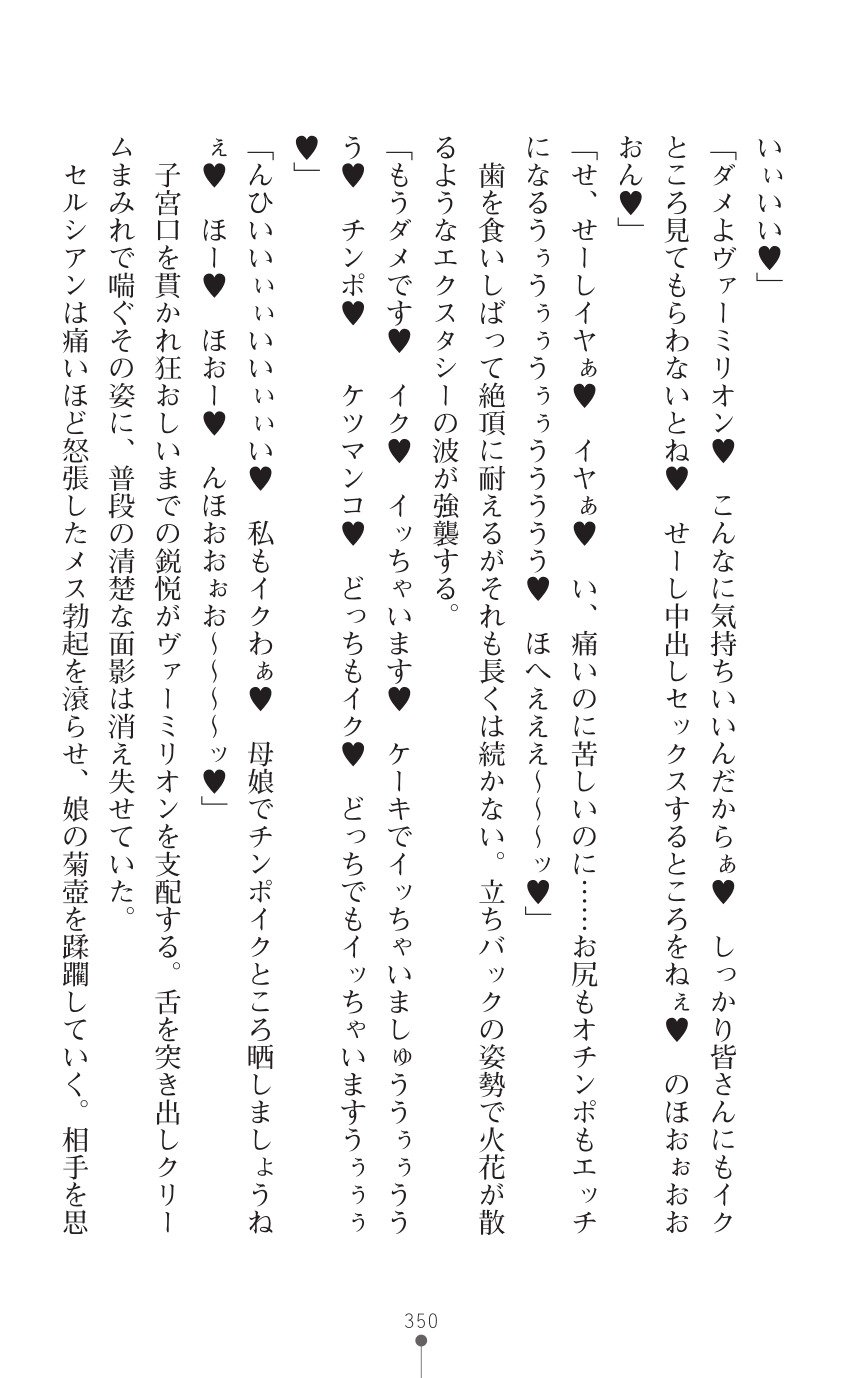 いぃいい♥」
「ダメよヴァーミリオン♥　こんなに気持ちいいんだからぁ♥　しっかり皆さんにもイク
ところ見てもらわないとね♥　せーし中出しセックスするところをねぇ♥　のほおぉおお
おん♥」
「せ、せーしイヤぁ♥　イヤぁ♥　い、痛いのに苦しいのに……お尻もオチンポもエッチ
になるうぅうぅぅうぅぅうううう♥　ほへえええ～～～ッ♥」
　歯を食いしばって絶頂に耐えるがそれも長くは続かない。立ちバックの姿勢で火花が散
るようなエクスタシーの波が強襲する。
「もうダメです♥　イク♥　イッちゃいます♥　ケーキでイッちゃいましゅううぅぅうう
う♥　チンポ♥　ケツマンコ♥　どっちもイク♥　どっちでもイッちゃいますうぅぅぅ
♥」
「んひいいぃぃいいぃぃい♥　私もイクわぁ♥　母娘でチンポイクところ晒しましょうね
ぇ♥　ほー♥　ほおー♥　んほおおぉお～～～～ッ♥」
　子宮口を貫かれ狂おしいまでの鋭悦がヴァーミリオンを支配する。舌を突き出しクリー
ムまみれで喘ぐその姿に、普段の清楚な面影は消え失せていた。
　セルシアンは痛いほど怒張したメス勃起を滾らせ、娘の菊壺を蹂躙していく。相手を思
350